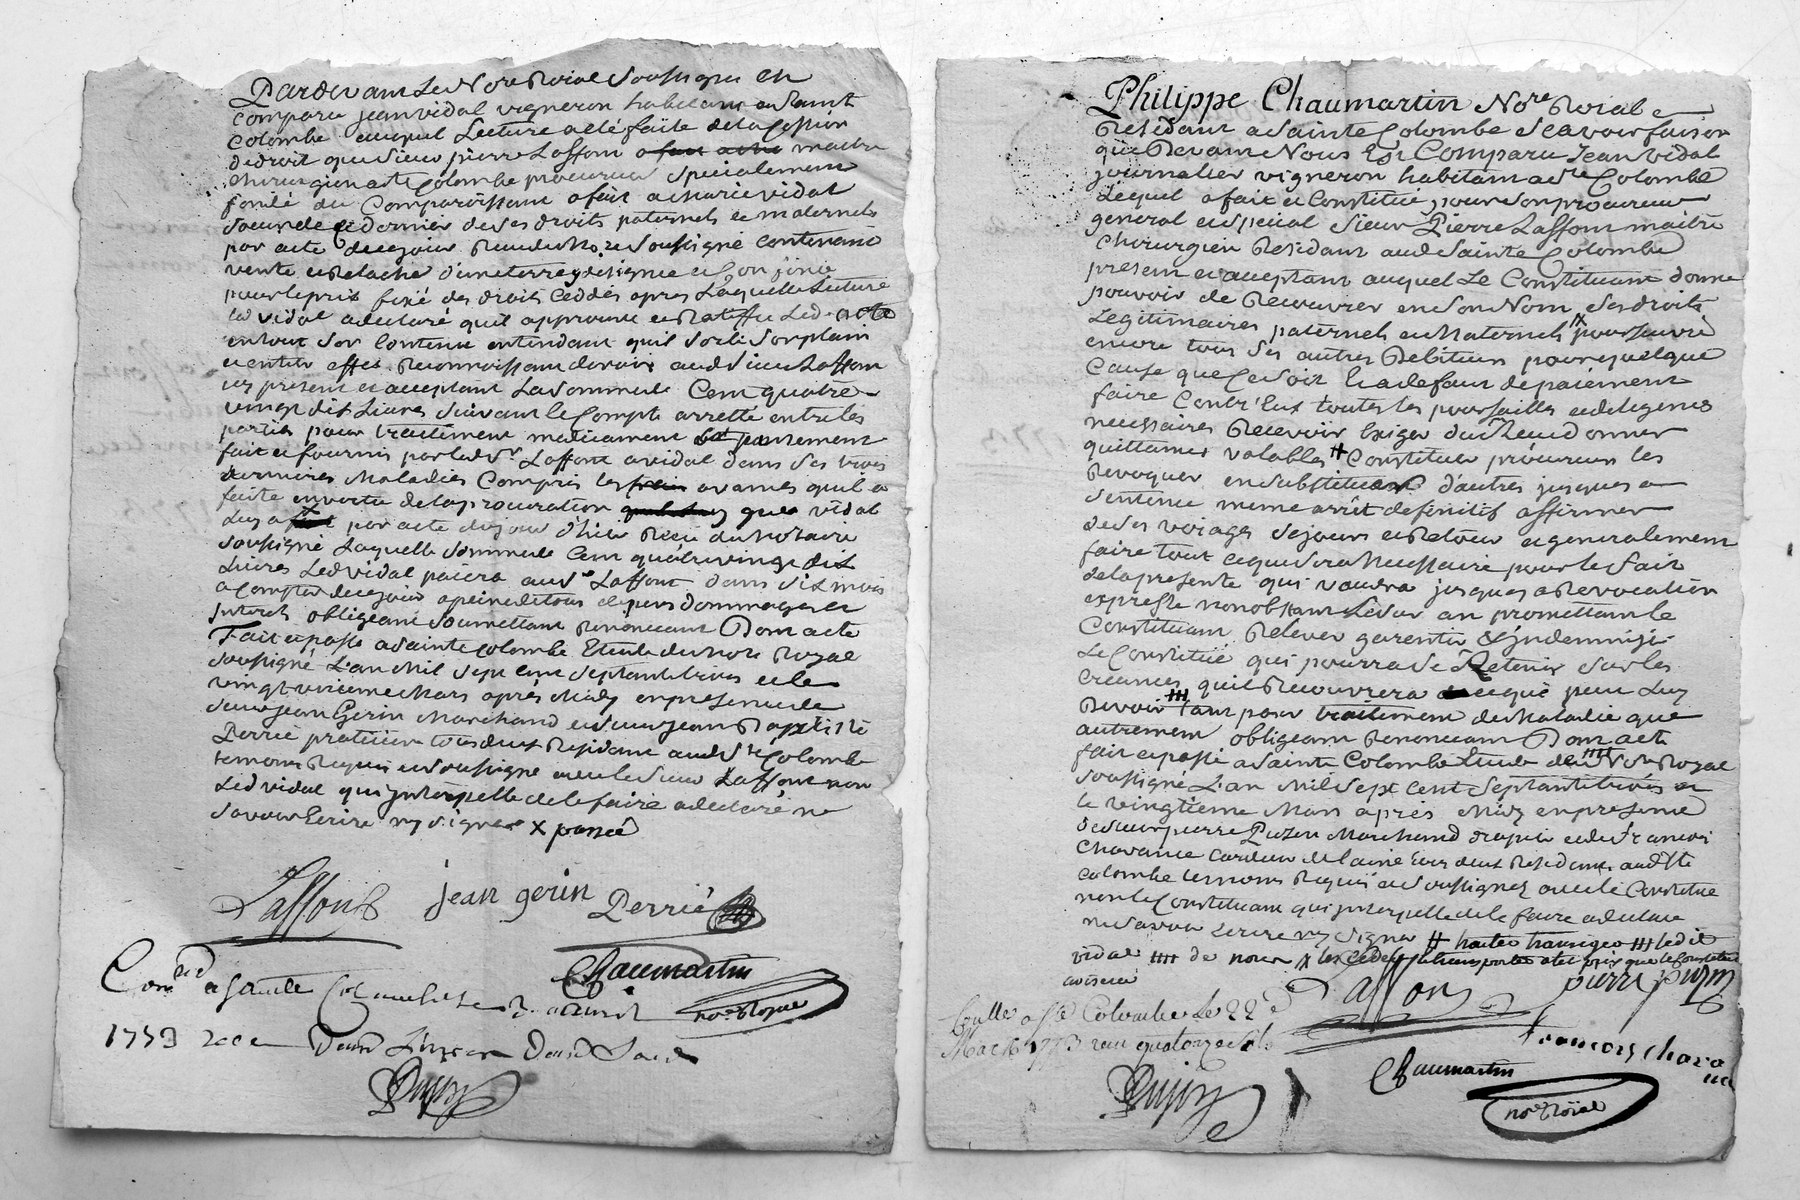 Pardevant Le No.re Roial Soussigné En
Comparu jean vidal vigneron habitant a Saint
Colombe auquel Lecture a eté faite de la Cession
de droit que Sieur pierre Laffont a fait maitre
chirurgien a Ste Colombe procureur Specialement
fondé du Comparoissant a fait a marie vidal
Soeur de ce dernier de ses droits paternels et maternels
par acte de cejour Recu du No.re Soussigné Contenant
vente et Relache d'une terre y designée et Confinée
pour le prix fixé des droits Ceddés apres Laquelle Lecture
Led vidal a declaré quil approuve et Ratiffie Led. acte
en tout Son Contenu entendant quil Sorte Son plain
et entier effet. Reconnoissant devoir aud Sieur Laffont
icy present et acceptant La Somme de Cent quatre
vingt dix Livres Suivant le Compte arretté entre les
parties pour traitement medicament et pansement
fait et fournis par led Sr. Laffont a vidal dans Ses
dernieres Maladies Compris les frais avances quil a
faite en vertu de la procuration que vidal
Luy a X par acte du jour d'hier Recu du Notaire
Soussigné Laquelle Somme de Cent quatre vingt dix
Livres Led vidal paiera aud Sr Laffont dans Six mois
a Compter de cejour a peine de tous depens dommages et
Interets obligeant Soumettant Renonceant Dont acte
Fait et passé a Sainte Colombe Etude du No.re Royal
Soussigné L'an Mil Sept cent Septante trois et le
vingt unieme Mars après Midy en presence de
Sieur jean Gerin Marchand et Sieur jean Baptiste
Perrié praticien tous deux Residant aud Ste Colombe
temoins Requis et Soussigné avec le Sieur Laffont non
Led vidal qui Interpelle de le faire a declaré ne
Savoir Ecrire ny Signer X passée
Laffont jean gerin Perrié
Chaumartin
no.re Royal
Con.lé a Sainte Colombe le
1773 Recu
Pujon
Philippe Chaumartin No.re Roial
Residant a Sainte Colombe Scavoir faison
que Devant Nous Est Comparu Jean Vidal
journalier vigneron habitant a Ste Colombe
Lequel a fait et Constitué pour Son procureur
general et Special Sieur Pierre Laffont maitre
Chirurgien Residant aud Sainte Colombe
present et acceptant auquel Le Constituant donne
pouvoir de Recouvrer en Son Nom Ses droits
Legitimaires paternels et Maternels X poursuivre
encore tous Ses autres Debiteurs pour quelque
Cause que Ce Soit Et a defaut de paiement
faire Contr'Eux toutes les poursuittes et diligences
necessaires Recevoir Exiger du Recu donner
quittances valables # Constituer procureur les
Revoquer en Substituer d'autres jusques a
Sentence meme arrêt definitif affirmer
de Ses voiages Sejours et Retour et generalement
faire tout ce qui Sera Necessaire pour le fait
de la presente qui vaudra jusques a Revocation
expresse nonobstant an promettant le
Constituant Relever garentir & Indemniser
Le Constitué qui pourra Se Retenir Sur les
Creances quil Recouvrera ce que peut Luy
Devoir ### tant pour traitement de Maladie que
autrement obligeant Renonceant Dont acte
fait et passé a Sainte Colombe Etude #### No.re Royal
Soussigné L'an Mil Sept Cent Septante trois et
le vingtieme Mars après Midy en presence
de Sieur pierre Puzin Marchand drapier et de francois
Chavance Cardeur de laine tous deux Residant aud Ste
Colombe temoins Requis et Soussignez avec le Constitué
non le Constituant qui Interpelle de le faire a declaré
ne Savoir Ecrire ny Signer # traiter transiger ### ledit
vidal #### de nous X les ceder transporter a tel prix que le Constitué
avisera
Laffont pierre puzin
francois chavance
Chaumartin
no.re Roial
Collé a Ste Colombe le 22e
Mars 1773 recu quatorze sols
Pujon